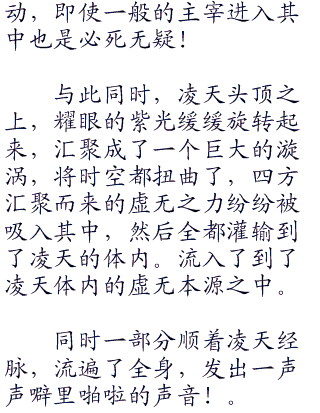 动，即使一般的主宰进入其
中也是必死无疑！
与此同时，凌天头顶之
上，耀眼的紫光缓缓旋转起
来，汇聚成了一个巨大的漩
涡，将时空都扭曲了，四方
汇聚而来的虚无之力纷纷被
吸入其中，然后全都灌输到
了凌天的体内。流入了到了
凌天体内的虚无本源之中。
同时一部分顺着凌天经
脉，流遍了全身，发出一声
声噼里啪啦的声音！。